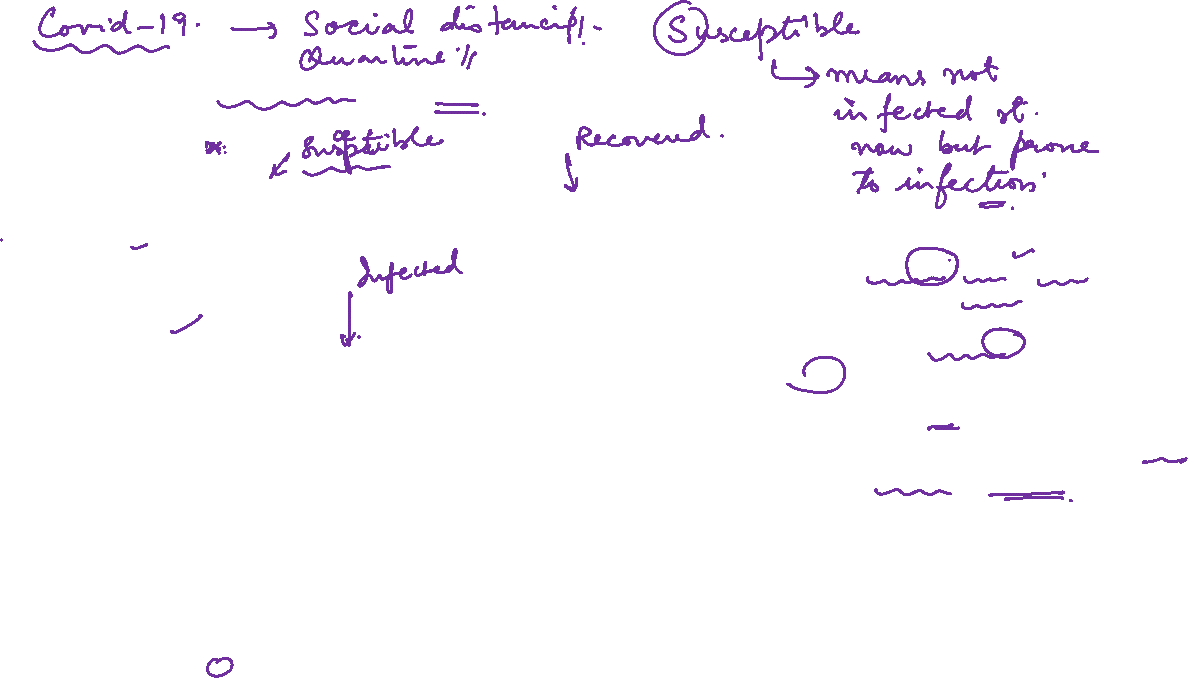 Covid-19. → Social distancing.
Quartine
Susceptible
means not
infected st.
now but prone
to infection.
Susptible
Recovered.
Infected